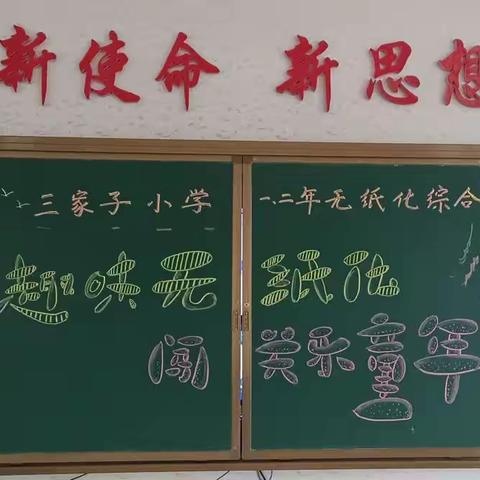 新使命 新思想
三家子小学 一、二年无纸化综合
趣味无纸化
闯关乐童年